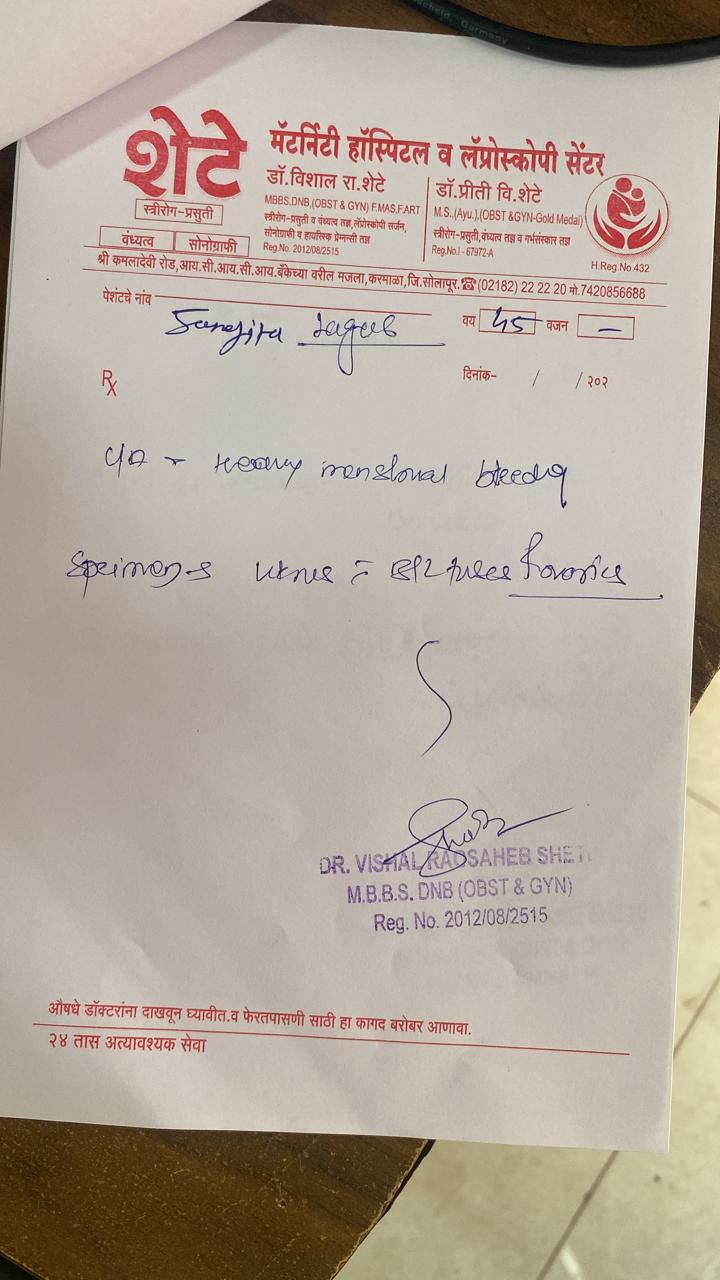 scheid, Germany
शेटे
स्त्रीरोग-प्रसुती
वंध्यत्व सोनोग्राफी
मॅटर्निटी हॉस्पिटल व लॅप्रोस्कोपी सेंटर
डॉ.विशाल रा.शेटे
MBBS,DNB,(OBST & GYN) F.MAS,F.ART
स्त्रीरोग-प्रसुती व वंध्यत्व तज्ञ,लॅप्रोस्कोपी सर्जन,
सोनोग्राफी व हायरिस्क प्रेग्नन्सी तज्ञ
Reg.No.2012/08/2515
डॉ.प्रीती वि.शेटे
M.S.,(Ayu.),(OBST &GYN-Gold Medal)
स्त्रीरोग-प्रसुती,वंध्यत्व तज्ञ व गर्भसंस्कार तज्ञ
Reg.No.I - 67972-A
H.Reg.No.432
श्री कमलादेवी रोड,आय.सी.आय.सी.आय.बँकेच्या वरील मजला,करमाळा,जि.सोलापूर.☎(02182) 22 22 20 मो.7420856688
पेशंटचे नांव
वय 45 वजन –
Rx
दिनांक- / / २०२
Heavy menstrual bleeding
Specimen
DR. VISHAL RAOSAHEB SHETE
M.B.B.S. DNB (OBST & GYN)
Reg. No. 2012/08/2515
औषधे डॉक्टरांना दाखवून घ्यावीत.व फेरतपासणी साठी हा कागद बरोबर आणावा.
२४ तास अत्यावश्यक सेवा